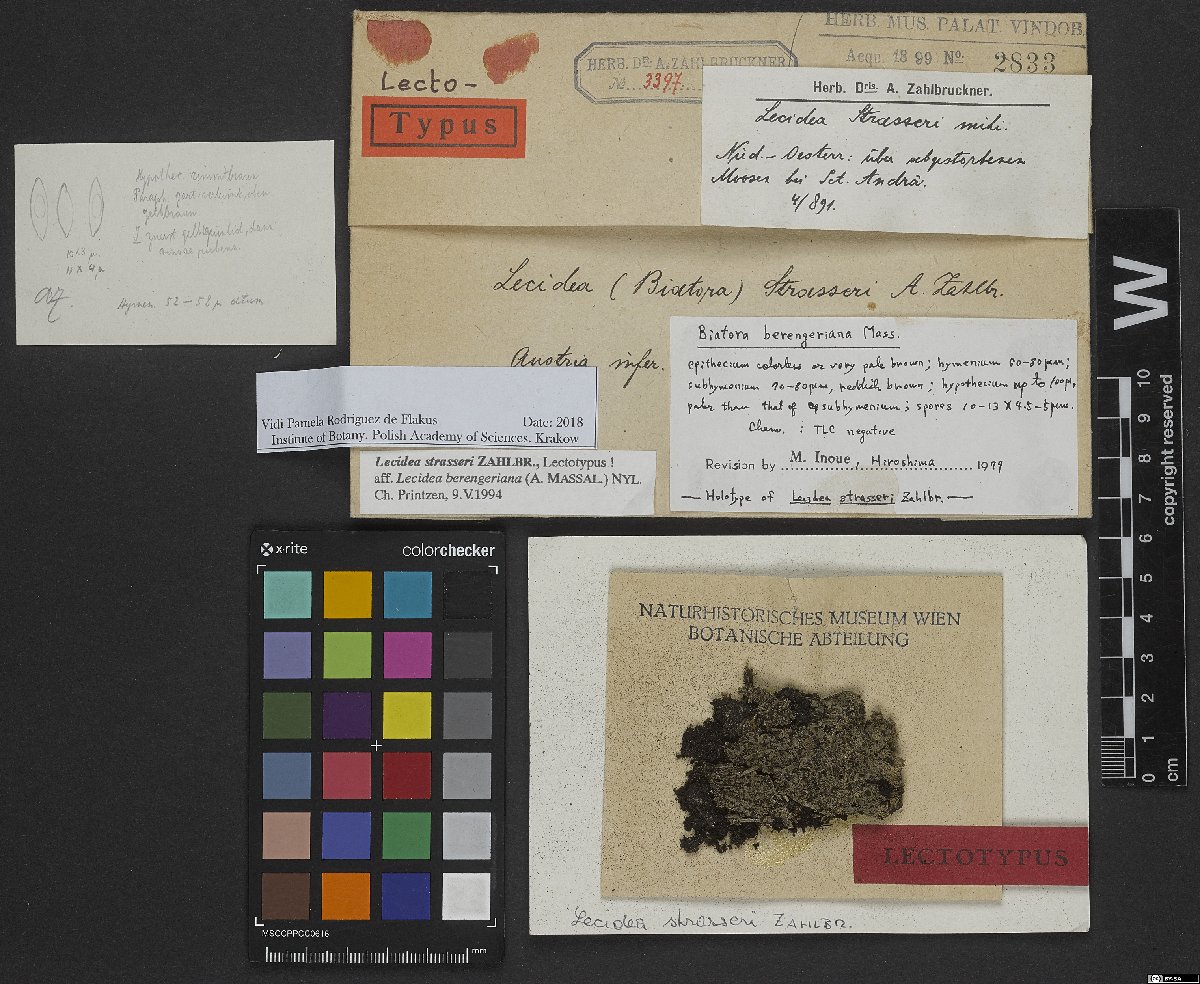 HERB. MUS. PALAT. VINDOB.
Acqu. 1899 No. 2833
HERB. DR. A. ZAHLBRUCKNER
No. 3397.
Lecto-
Typus
Herb. Dris. A. Zahlbruckner.
Lecidea Strasseri mihi.
Nied.-Oesterr: über abgestorbenen
Moosen bei Sct. Andrä.
4/891.
Lecidea (Biatora) Strasseri A. Zahlbr.
Austria infer.
Hypothec.
gelbbraun
11 x 4 µ
Hymen. 52-58 µ
Biatora berengeriana Mass.
epithecium colorless or very pale brown; hymenium 60-80µm;
subhymenium 70-80µm, reddish brown; hypothecium up to 100µ,
paler than that of subhymenium; spores 10-13 X 4.5-5µm.
Chem. : TLC negative
Revision by M. Inoue, Hiroshima 1979
— Holotype of Lecidea strasseri Zahlbr. —
Vidi Pamela Rodriguez de Flakus Date: 2018
Institute of Botany, Polish Academy of Sciences, Krakow
Lecidea strasseri ZAHLBR., Lectotypus !
aff. Lecidea berengeriana (A. MASSAL.) NYL.
Ch. Printzen, 9.V.1994
W
10
9
8
7
6
5
4
3
2
1
0
cm
copyright reserved
x-rite colorchecker
MSCCPPCC0616
mm
NATURHISTORISCHES MUSEUM WIEN
BOTANISCHE ABTEILUNG
LECTOTYPUS
Lecidea strasseri ZAHLBR.